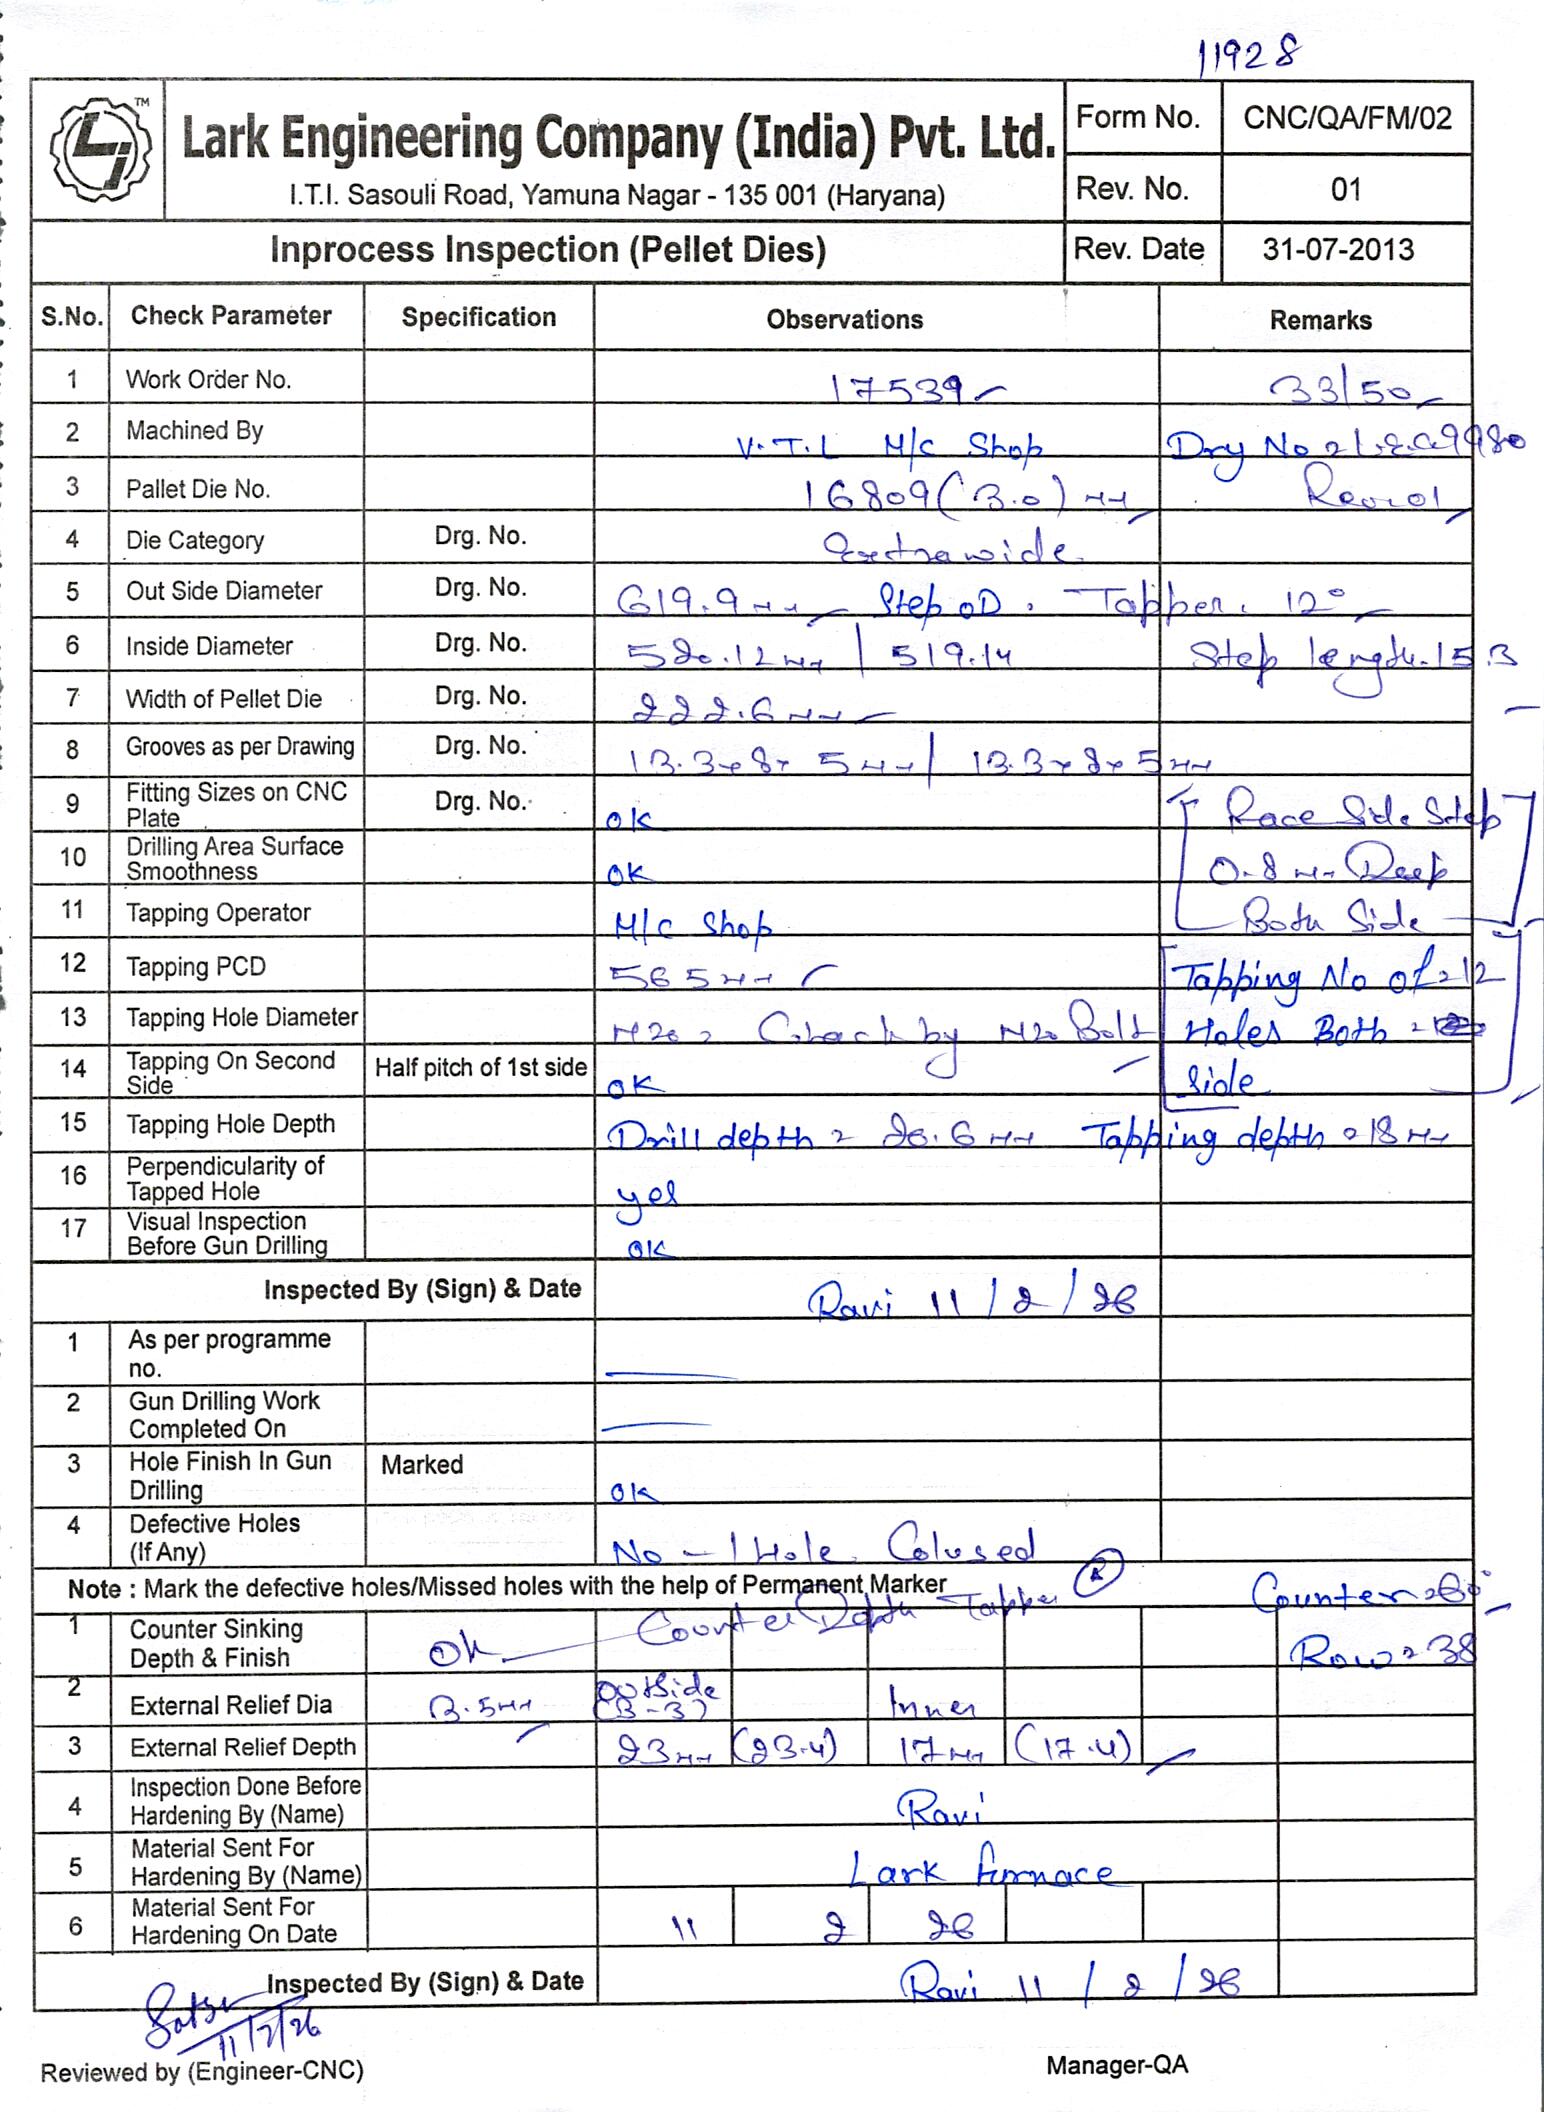 11928
TM
Lark Engineering Company (India) Pvt. Ltd.
I.T.I. Sasouli Road, Yamuna Nagar - 135 001 (Haryana)
Form No. CNC/QA/FM/02
Rev. No. 01
Inprocess Inspection (Pellet Dies) Rev. Date 31-07-2013
S.No. Check Parameter Specification Observations Remarks
1 Work Order No. 17539 33/50
2 Machined By V.T.L M/C Shop Drg No
3 Pallet Die No. 16809 (3.0) mm Rev.01
4 Die Category Drg. No. Extrawide
5 Out Side Diameter Drg. No. 619.9mm Step OD. Tapper. 12°
6 Inside Diameter Drg. No. 520.12mm / 519.14 Step length.15.3
7 Width of Pellet Die Drg. No. 222.6mm
8 Grooves as per Drawing Drg. No. 13.3x8x5mm / 13.3x8x5mm
9 Fitting Sizes on CNC Plate Drg. No. ok Race Side Step
10 Drilling Area Surface Smoothness ok 0.8mm Deep
11 Tapping Operator M/C Shop Both Side
12 Tapping PCD 565mm Tapping No of = 12
13 Tapping Hole Diameter M20 = Check by M20 Bolt Holes Both =
14 Tapping On Second Side Half pitch of 1st side ok Side
15 Tapping Hole Depth Drill depth = 26.6mm Tapping depth = 18mm
16 Perpendicularity of Tapped Hole yes
17 Visual Inspection Before Gun Drilling ok
Inspected By (Sign) & Date Ravi 11/2/26
1 As per programme no.
2 Gun Drilling Work Completed On
3 Hole Finish In Gun Drilling Marked ok
4 Defective Holes (If Any) No - 1 Hole Colused
Note : Mark the defective holes/Missed holes with the help of Permanent Marker
1 Counter Sinking Depth & Finish Ok Counter Depth Tapper Counter = 60°
Row = 38
2 External Relief Dia 3.5mm Outside (3-3) Inner
3 External Relief Depth 23mm (23.4) 17mm (17.4)
4 Inspection Done Before Hardening By (Name) Ravi
5 Material Sent For Hardening By (Name) Lark furnace
6 Material Sent For Hardening On Date 11 2 26
Inspected By (Sign) & Date Ravi 11/2/26
11/2/26
Reviewed by (Engineer-CNC) Manager-QA